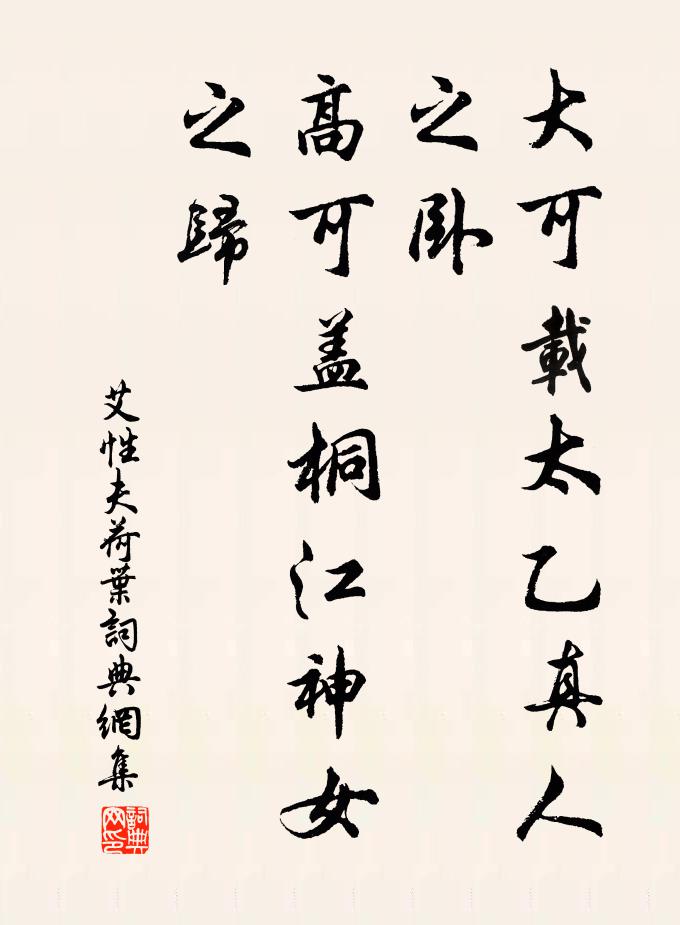 大可載太乙真人
之卧
高可盖桐江神女
之歸
艾性夫荷葉詞典網集
詞典
网印